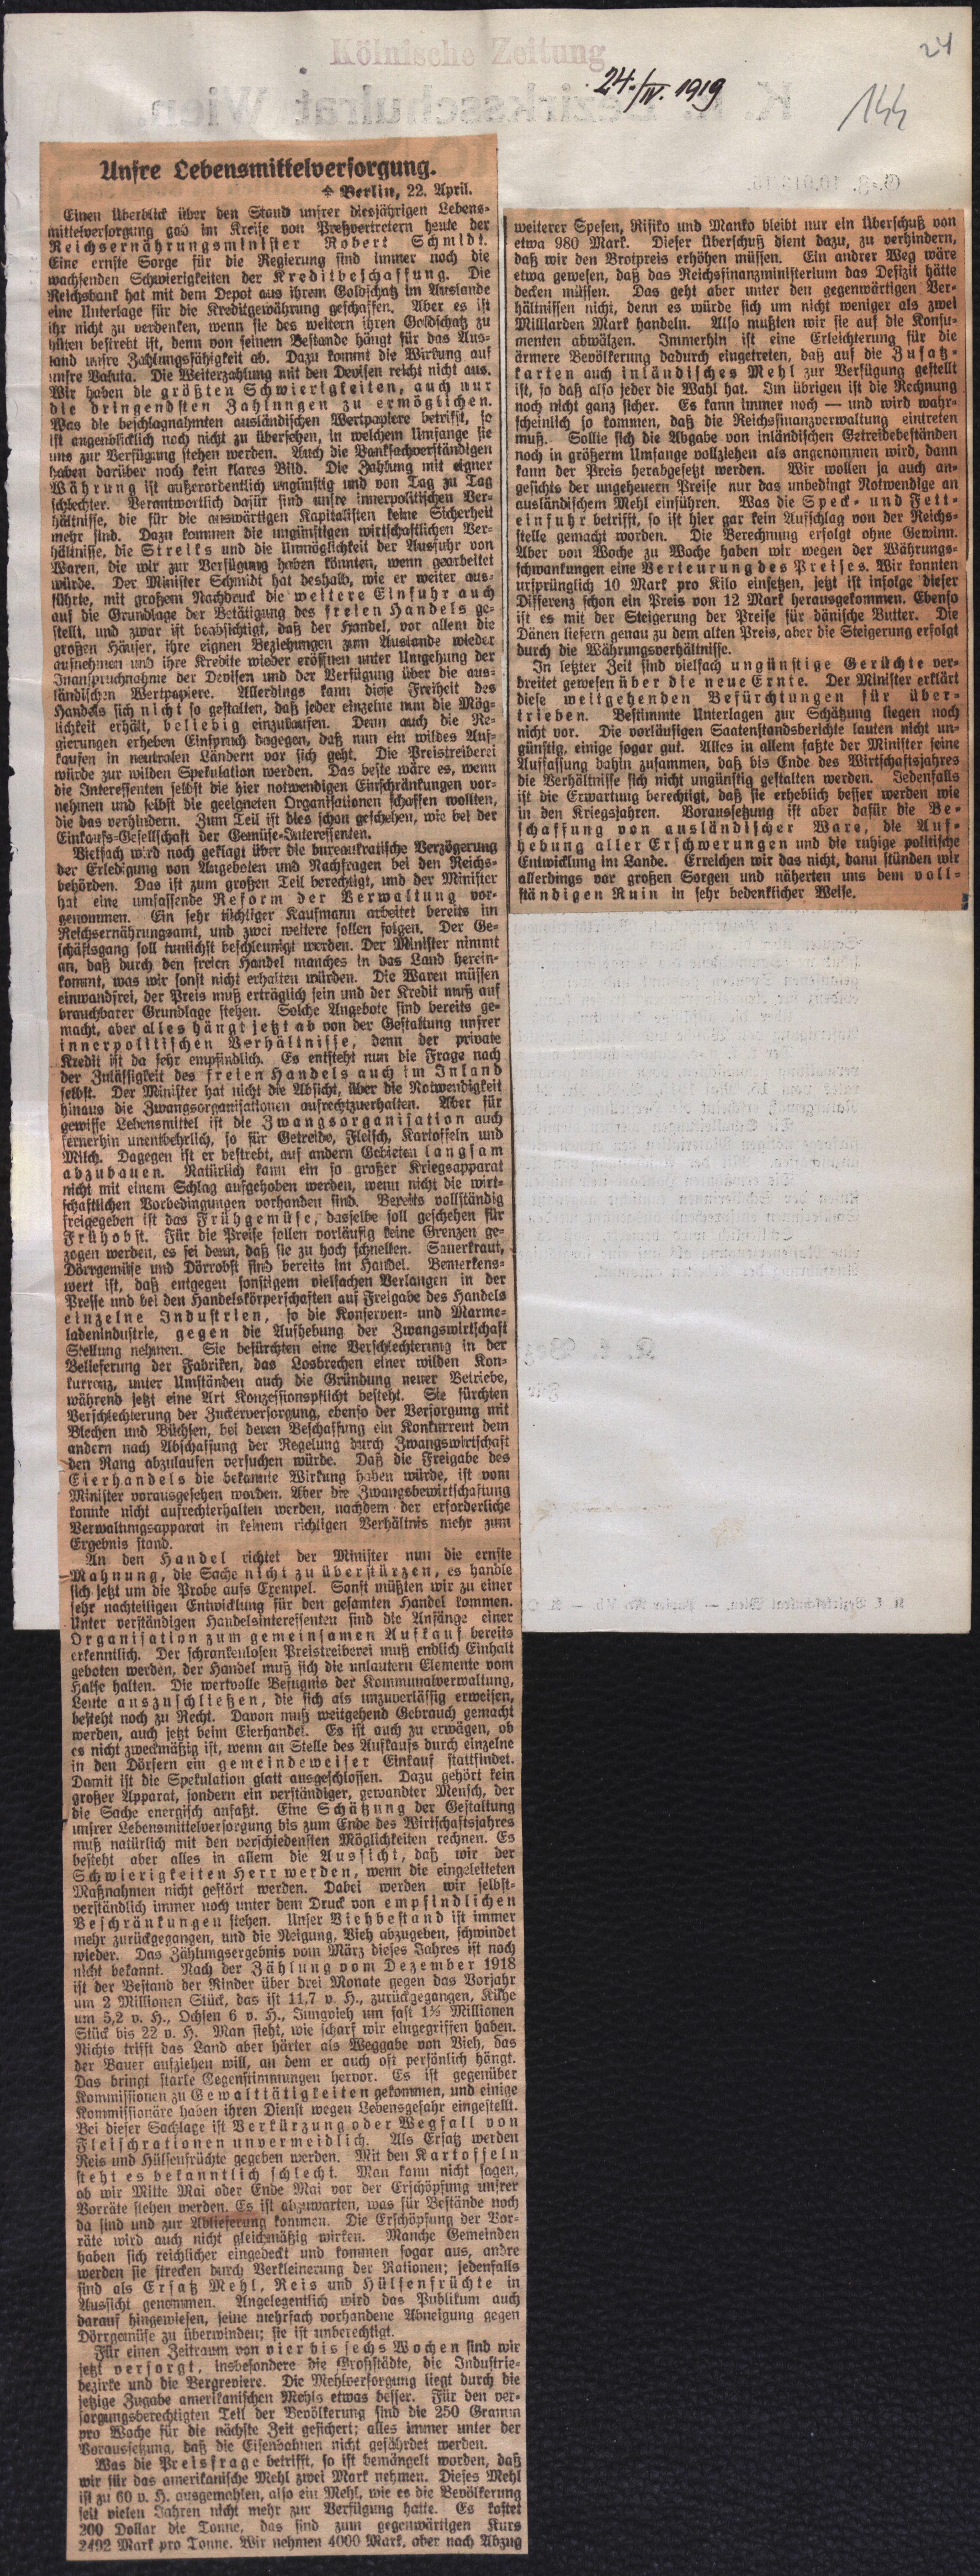 Kölnische Zeitung
24./IV. 1919
24
144
Unsre Lebensmittelversorgung.
Berlin, 22. April.
Einen Überblick über den Stand unsrer diesjährigen Lebens-
mittelversorgung gab im Kreise von Preßvertretern heute der
Reichsernährungsminister Robert Schmidt.
Eine ernste Sorge für die Regierung sind immer noch die
wachsenden Schwierigkeiten der Kreditbeschaffung. Die
Reichsbank hat mit dem Depot aus ihrem Goldschatz im Auslande
eine Unterlage für die Kreditgewährung geschaffen. Aber es ist
ihr nicht zu verdenken, wenn sie des weitern ihren Goldschatz zu
hüten bestrebt ist, denn von seinem Bestande hängt für das Aus-
land unsre Zahlungsfähigkeit ab. Dazu kommt die Wirkung auf
unsre Valuta. Die Weiterzahlung mit den Devisen reicht nicht aus.
Wir haben die größten Schwierigkeiten, auch nur
die dringendsten Zahlungen zu ermöglichen.
Was die beschlagnahmten ausländischen Wertpapiere betrifft, so
ist augenblicklich noch nicht zu übersehen, in welchem Umfange sie
uns zur Verfügung stehen werden. Auch die Banksachverständigen
haben darüber noch kein klares Bild. Die Zahlung mit eigner
Währung ist außerordentlich ungünstig und von Tag zu Tag
schlechter. Verantwortlich dafür sind unsre innerpolitischen Ver-
hältnisse, die für die auswärtigen Kapitalisten keine Sicherheit
mehr sind. Dazu kommen die ungünstigen wirtschaftlichen Ver-
hältnisse, die Streiks und die Unmöglichkeit der Ausfuhr von
Waren, die wir zur Verfügung haben könnten, wenn gearbeitet
würde. Der Minister Schmidt hat deshalb, wie er weiter aus-
führte, mit großem Nachdruck die weitere Einfuhr auch
auf die Grundlage der Betätigung des freien Handels ge-
stellt, und zwar ist beabsichtigt, daß der Handel, vor allem die
großen Häuser, ihre eignen Beziehungen zum Auslande wieder
aufnehmen und ihre Kredite wieder eröffnen unter Umgehung der
Inanspruchnahme der Devisen und der Verfügung über die aus-
ländischen Wertpapiere. Allerdings kann diese Freiheit des
Handels sich nicht so gestalten, daß jeder einzelne nun die Mög-
lichkeit erhält, beliebig einzukaufen. Denn auch die Re-
gierungen erheben Einspruch dagegen, daß nun ein wildes Auf-
kaufen in neutralen Ländern vor sich geht. Die Preistreiberei
würde zur wilden Spekulation werden. Das beste wäre es, wenn
die Interessenten selbst die hier notwendigen Einschränkungen vor-
nehmen und selbst die geeigneten Organisationen schaffen wollten,
die das verhindern. Zum Teil ist dies schon geschehen, wie bei der
Einkaufs-Gesellschaft der Gemüse-Interessenten.
Vielfach wird noch geklagt über die bureaukratische Verzögerung
der Erledigung von Angeboten und Nachfragen bei den Reichs-
behörden. Das ist zum großen Teil berechtigt, und der Minister
hat eine umfassende Reform der Verwaltung vor-
genommen. Ein sehr tüchtiger Kaufmann arbeitet bereits im
Reichsernährungsamt, und zwei weitere sollen folgen. Der Ge-
schäftsgang soll tunlichst beschleunigt werden. Der Minister nimmt
an, daß durch den freien Handel manches in das Land herein-
kommt, was wir sonst nicht erhalten würden. Die Waren müssen
einwandfrei, der Preis muß erträglich sein und der Kredit muß auf
brauchbarer Grundlage stehen. Solche Angebote sind bereits ge-
macht, aber alles hängt jetzt ab von der Gestaltung unsrer
innerpolitischen Verhältnisse, denn der private
Kredit ist da sehr empfindlich. Es entsteht nun die Frage nach
der Zulässigkeit des freien Handels auch im Inland
selbst. Der Minister hat nicht die Absicht, über die Notwendigkeit
hinaus die Zwangsorganisationen aufrechtzuerhalten. Aber für
gewisse Lebensmittel ist die Zwangsorganisation auch
fernerhin unentbehrlich, so für Getreide, Fleisch, Kartoffeln und
Milch. Dagegen ist er bestrebt, auf andern Gebieten langsam
abzubauen. Natürlich kann ein so großer Kriegsapparat
nicht mit einem Schlag aufgehoben werden, wenn nicht die wirt-
schaftlichen Vorbedingungen vorhanden sind. Bereits vollständig
freigegeben ist das Frühgemüse, dasselbe soll geschehen für
Frühobst. Für die Preise sollen vorläufig keine Grenzen ge-
zogen werden, es sei denn, daß sie zu hoch schnellen. Sauerkraut,
Dörrgemüse und Dörrobst sind bereits im Handel. Bemerkens-
wert ist, daß entgegen sonstigem vielfachen Verlangen in der
Presse und bei den Handelskörperschaften auf Freigabe des Handels
einzelne Industrien, so die Konserven- und Marme-
ladenindustrie, gegen die Aufhebung der Zwangswirtschaft
Stellung nehmen. Sie befürchten eine Verschlechterung in der
Belieferung der Fabriken, das Losbrechen einer wilden Kon-
kurrenz, unter Umständen auch die Gründung neuer Betriebe,
während jetzt eine Art Konzessionspflicht besteht. Sie fürchten
Verschlechterung der Zuckerversorgung, ebenso der Versorgung mit
Blechen und Büchsen, bei deren Beschaffung ein Konkurrent dem
andern nach Abschaffung der Regelung durch Zwangswirtschaft
den Rang abzulaufen versuchen würde. Daß die Freigabe des
Eierhandels die bekannte Wirkung haben würde, ist vom
Minister vorausgesehen worden. Aber die Zwangsbewirtschaftung
konnte nicht aufrechterhalten werden, nachdem der erforderliche
Verwaltungsapparat in keinem richtigen Verhältnis mehr zum
Ergebnis stand.
An den Handel richtet der Minister nun die ernste
Mahnung, die Sache nicht zu überstürzen, es handle
sich jetzt um die Probe aufs Exempel. Sonst müßten wir zu einer
sehr nachteiligen Entwicklung für den gesamten Handel kommen.
Unter verständigen Handelsinteressenten sind die Anfänge einer
Organisation zum gemeinsamen Aufkauf bereits
erkenntlich. Der schrankenlosen Preistreiberei muß endlich Einhalt
geboten werden, der Handel muß sich die unlautern Elemente vom
Halse halten. Die wertvolle Befugnis der Kommunalverwaltung,
Leute auszuschließen, die sich als unzuverlässig erweisen,
besteht noch zu Recht. Davon muß weitgehend Gebrauch gemacht
werden, auch jetzt beim Eierhandel. Es ist auch zu erwägen, ob
es nicht zweckmäßig ist, wenn an Stelle des Aufkaufs durch einzelne
in den Dörfern ein gemeindeweiser Einkauf stattfindet.
Damit ist die Spekulation glatt ausgeschlossen. Dazu gehört kein
großer Apparat, sondern ein verständiger, gewandter Mensch, der
die Sache energisch anfaßt. Eine Schätzung der Gestaltung
unsrer Lebensmittelversorgung bis zum Ende des Wirtschaftsjahres
muß natürlich mit den verschiedensten Möglichkeiten rechnen. Es
besteht aber alles in allem die Aussicht, daß wir der
Schwierigkeiten Herr werden, wenn die eingeleiteten
Maßnahmen nicht gestört werden. Dabei werden wir selbst-
verständlich immer noch unter dem Druck von empfindlichen
Beschränkungen stehen. Unser Viehbestand ist immer
mehr zurückgegangen, und die Neigung, Vieh abzugeben, schwindet
wieder. Das Zählungsergebnis vom März dieses Jahres ist noch
nicht bekannt. Nach der Zählung vom Dezember 1918
ist der Bestand der Rinder über drei Monate gegen das Vorjahr
um 2 Millionen Stück, das ist 11,7 v. H., zurückgegangen, Kühe
um 5,2 v. H., Ochsen 6 v. H., Jungvieh um fast 1½ Millionen
Stück bis 22 v. H. Man sieht, wie scharf wir eingegriffen haben.
Nichts trifft das Land aber härter als Weggabe von Vieh, das
der Bauer aufziehen will, an dem er auch oft persönlich hängt.
Das bringt starke Gegenstimmungen hervor. Es ist gegenüber
Kommissionen zu Gewalttätigkeiten gekommen, und einige
Kommissionäre haben ihren Dienst wegen Lebensgefahr eingestellt.
Bei dieser Sachlage ist Verkürzung oder Wegfall von
Fleischrationen unvermeidlich. Als Ersatz werden
Reis und Hülsenfrüchte gegeben werden. Mit den Kartoffeln
steht es bekanntlich schlecht. Man kann nicht sagen,
ob wir Mitte Mai oder Ende Mai vor der Erschöpfung unsrer
Vorräte stehen werden. Es ist abzuwarten, was für Bestände noch
da sind und zur Ablieferung kommen. Die Erschöpfung der Vor-
räte wird auch nicht gleichmäßig wirken. Manche Gemeinden
haben sich reichlicher eingedeckt und kommen sogar aus, andre
werden sie strecken durch Verkleinerung der Rationen; jedenfalls
sind als Ersatz Mehl, Reis und Hülsenfrüchte in
Aussicht genommen. Angelegentlich wird das Publikum auch
darauf hingewiesen, seine mehrfach vorhandene Abneigung gegen
Dörrgemüse zu überwinden; sie ist unberechtigt.
Für einen Zeitraum von vier bis sechs Wochen sind wir
jetzt versorgt, insbesondere die Großstädte, die Industrie-
bezirke und die Bergreviere. Die Mehlversorgung liegt durch die
jetzige Zugabe amerikanischen Mehls etwas besser. Für den ver-
sorgungsberechtigten Teil der Bevölkerung sind die 250 Gramm
pro Woche für die nächste Zeit gesichert; alles immer unter der
Voraussetzung, daß die Eisenbahnen nicht gefährdet werden.
Was die Preisfrage betrifft, so ist bemängelt worden, daß
wir für das amerikanische Mehl zwei Mark nehmen. Dieses Mehl
ist zu 60 v. H. ausgemahlen, also ein Mehl, wie es die Bevölkerung
seit vielen Jahren nicht mehr zur Verfügung hatte. Es kostet
200 Dollar die Tonne, das sind zum gegenwärtigen Kurs
2492 Mark pro Tonne. Wir nehmen 4000 Mark, aber nach Abzug
weiterer Spesen, Risiko und Manko bleibt nur ein Überschuß von
etwa 980 Mark. Dieser Überschuß dient dazu, zu verhindern,
daß wir den Brotpreis erhöhen müssen. Ein andrer Weg wäre
etwa gewesen, daß das Reichsfinanzministerium das Defizit hätte
decken müssen. Das geht aber unter den gegenwärtigen Ver-
hältnissen nicht, denn es würde sich um nicht weniger als zwei
Milliarden Mark handeln. Also mußten wir sie auf die Konsu-
menten abwälzen. Immerhin ist eine Erleichterung für die
ärmere Bevölkerung dadurch eingetreten, daß auf die Zusatz-
karten auch inländisches Mehl zur Verfügung gestellt
ist, so daß also jeder die Wahl hat. Im übrigen ist die Rechnung
noch nicht ganz sicher. Es kann immer noch — und wird wahr-
scheinlich so kommen, daß die Reichsfinanzverwaltung eintreten
muß. Sollte sich die Abgabe von inländischen Getreidebeständen
noch in größerm Umfange vollziehen als angenommen wird, dann
kann der Preis herabgesetzt werden. Wir wollen ja auch an-
gesichts der ungeheuern Preise nur das unbedingt Notwendige an
ausländischem Mehl einführen. Was die Speck- und Fett-
einfuhr betrifft, so ist hier gar kein Aufschlag von der Reichs-
stelle gemacht worden. Die Berechnung erfolgt ohne Gewinn.
Aber von Woche zu Woche haben wir wegen der Währungs-
schwankungen eine Verteurung des Preises. Wir konnten
ursprünglich 10 Mark pro Kilo einsetzen, jetzt ist infolge dieser
Differenz schon ein Preis von 12 Mark herausgekommen. Ebenso
ist es mit der Steigerung der Preise für dänische Butter. Die
Dänen liefern genau zu dem alten Preis, aber die Steigerung erfolgt
durch die Währungsverhältnisse.
In letzter Zeit sind vielfach ungünstige Gerüchte ver-
breitet gewesen über die neue Ernte. Der Minister erklärt
diese weitgehenden Befürchtungen für über-
trieben. Bestimmte Unterlagen zur Schätzung liegen noch
nicht vor. Die vorläufigen Saatenstandsberichte lauten nicht un-
günstig, einige sogar gut. Alles in allem faßte der Minister seine
Auffassung dahin zusammen, daß bis Ende des Wirtschaftsjahres
die Verhältnisse sich nicht ungünstig gestalten werden. Jedenfalls
ist die Erwartung berechtigt, daß sie erheblich besser werden wie
in den Kriegsjahren. Voraussetzung ist aber dafür die Be-
schaffung von ausländischer Ware, die Auf-
hebung aller Erschwerungen und die ruhige politische
Entwicklung im Lande. Erreichen wir das nicht, dann stünden wir
allerdings vor großen Sorgen und näherten uns dem voll-
ständigen Ruin in sehr bedenklicher Weise.